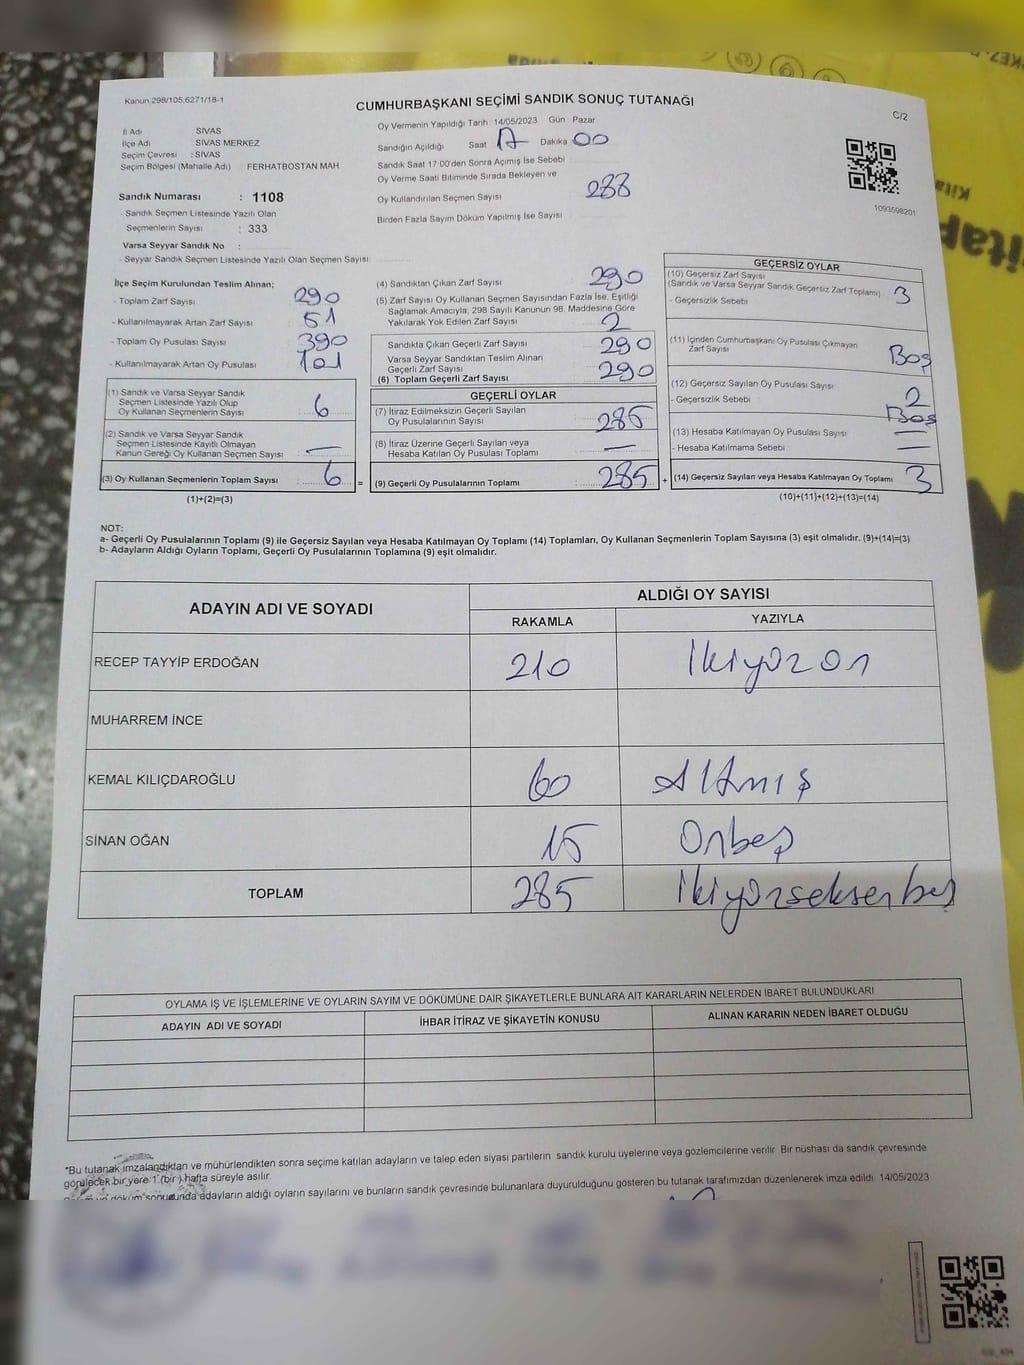 Kanun:298/105,6271/18-1
CUMHURBAŞKANI SEÇİMİ SANDIK SONUÇ TUTANAĞI
C/2
İl Adı SİVAS
İlçe Adı SİVAS MERKEZ
Seçim Çevresi : SİVAS
Seçim Bölgesi (Mahalle Adı) FERHATBOSTAN MAH.
Sandık Numarası : 1108
- Sandık Seçmen Listesinde Yazılı Olan
Seçmenlerin Sayısı : 333
Varsa Seyyar Sandık No :
- Seyyar Sandık Seçmen Listesinde Yazılı Olan Seçmen Sayısı:
Oy Vermenin Yapıldığı Tarih 14/05/2023 Gün Pazar
Sandığın Açıldığı Saat 17 Dakika 00
Sandık Saat 17:00'den Sonra Açımış İse Sebebi
Oy Verme Saati Bitiminde Sırada Bekleyen ve
Oy Kullandırılan Seçmen Sayısı 288
Birden Fazla Sayım Döküm Yapılmış İse Sayısı
1093598201
İlçe Seçim Kurulundan Teslim Alınan;
- Toplam Zarf Sayısı 290
- Kullanılmayarak Artan Zarf Sayısı 51
- Toplam Oy Pusulası Sayısı 390
- Kullanılmayarak Artan Oy Pusulası 101
(1) Sandık ve Varsa Seyyar Sandık
Seçmen Listesinde Yazılı Olup
Oy Kullanan Seçmenlerin Sayısı 6
(2) Sandık ve Varsa Seyyar Sandık
Seçmen Listesinde Kayıtlı Olmayan
Kanun Gereği Oy Kullanan Seçmen Sayısı : —
(3) Oy Kullanan Seçmenlerin Toplam Sayısı : 6 =
(1)+(2)=(3)
(4) Sandıktan Çıkan Zarf Sayısı 290
(5) Zarf Sayısı Oy Kullanan Seçmen Sayısından Fazla İse, Eşitliği
Sağlamak Amacıyla, 298 Sayılı Kanunun 98. Maddesine Göre
Yakılarak Yok Edilen Zarf Sayısı 2
Sandıkta Çıkan Geçerli Zarf Sayısı 290
Varsa Seyyar Sandıktan Teslim Alınan
Geçerli Zarf Sayısı 290
(6) Toplam Geçerli Zarf Sayısı
GEÇERLİ OYLAR
(7) İtiraz Edilmeksizin Geçerli Sayılan
Oy Pusulalarının Sayısı 285
(8) İtiraz Üzerine Geçerli Sayılan veya
Hesaba Katılan Oy Pusulası Toplamı —
(9) Geçerli Oy Pusulalarının Toplamı : 285 +
GEÇERSİZ OYLAR
(10) Geçersiz Zarf Sayısı
(Sandık ve Varsa Seyyar Sandık Geçersiz Zarf Toplamı) 3
- Geçersizlik Sebebi
(11) İçinden Cumhurbaşkanı Oy Pusulası Çıkmayan
Zarf Sayısı Boş
(12) Geçersiz Sayılan Oy Pusulası Sayısı 2
- Geçersizlik Sebebi Boş
(13) Hesaba Katılmayan Oy Pusulası Sayısı —
- Hesaba Katılmama Sebebi —
(14) Geçersiz Sayılan veya Hesaba Katılmayan Oy Toplamı 3
(10)+(11)+(12)+(13)=(14)
NOT:
a- Geçerli Oy Pusulalarının Toplamı (9) ile Geçersiz Sayılan veya Hesaba Katılmayan Oy Toplamı (14) Toplamları, Oy Kullanan Seçmenlerin Toplam Sayısına (3) eşit olmalıdır. (9)+(14)=(3)
b- Adayların Aldığı Oyların Toplamı, Geçerli Oy Pusulalarının Toplamına (9) eşit olmalıdır.
ADAYIN ADI VE SOYADI ALDIĞI OY SAYISI
RAKAMLA YAZIYLA
RECEP TAYYİP ERDOĞAN 210 İkiyüzon
MUHARREM İNCE
KEMAL KILIÇDAROĞLU 60 Altmış
SİNAN OĞAN 15 Onbeş
TOPLAM 285 İkiyüzseksenbeş
OYLAMA İŞ VE İŞLEMLERİNE VE OYLARIN SAYIM VE DÖKÜMÜNE DAİR ŞİKAYETLERLE BUNLARA AİT KARARLARIN NELERDEN İBARET BULUNDUKLARI
ADAYIN ADI VE SOYADI İHBAR İTİRAZ VE ŞİKAYETİN KONUSU ALINAN KARARIN NEDEN İBARET OLDUĞU
*Bu tutanak imzalandıktan ve mühürlendikten sonra seçime katılan adayların ve talep eden siyasi partilerin sandık kurulu üyelerine veya gözlemcilerine verilir. Bir nüshası da sandık çevresinde
görülecek bir yere 1 (bir) hafta süreyle asılır.
döküm sonucunda adayların aldığı oyların sayılarını ve bunların sandık çevresinde bulunanlara duyurulduğunu gösteren bu tutanak tarafımızdan düzenlenerek imza edildi. 14/05/2023